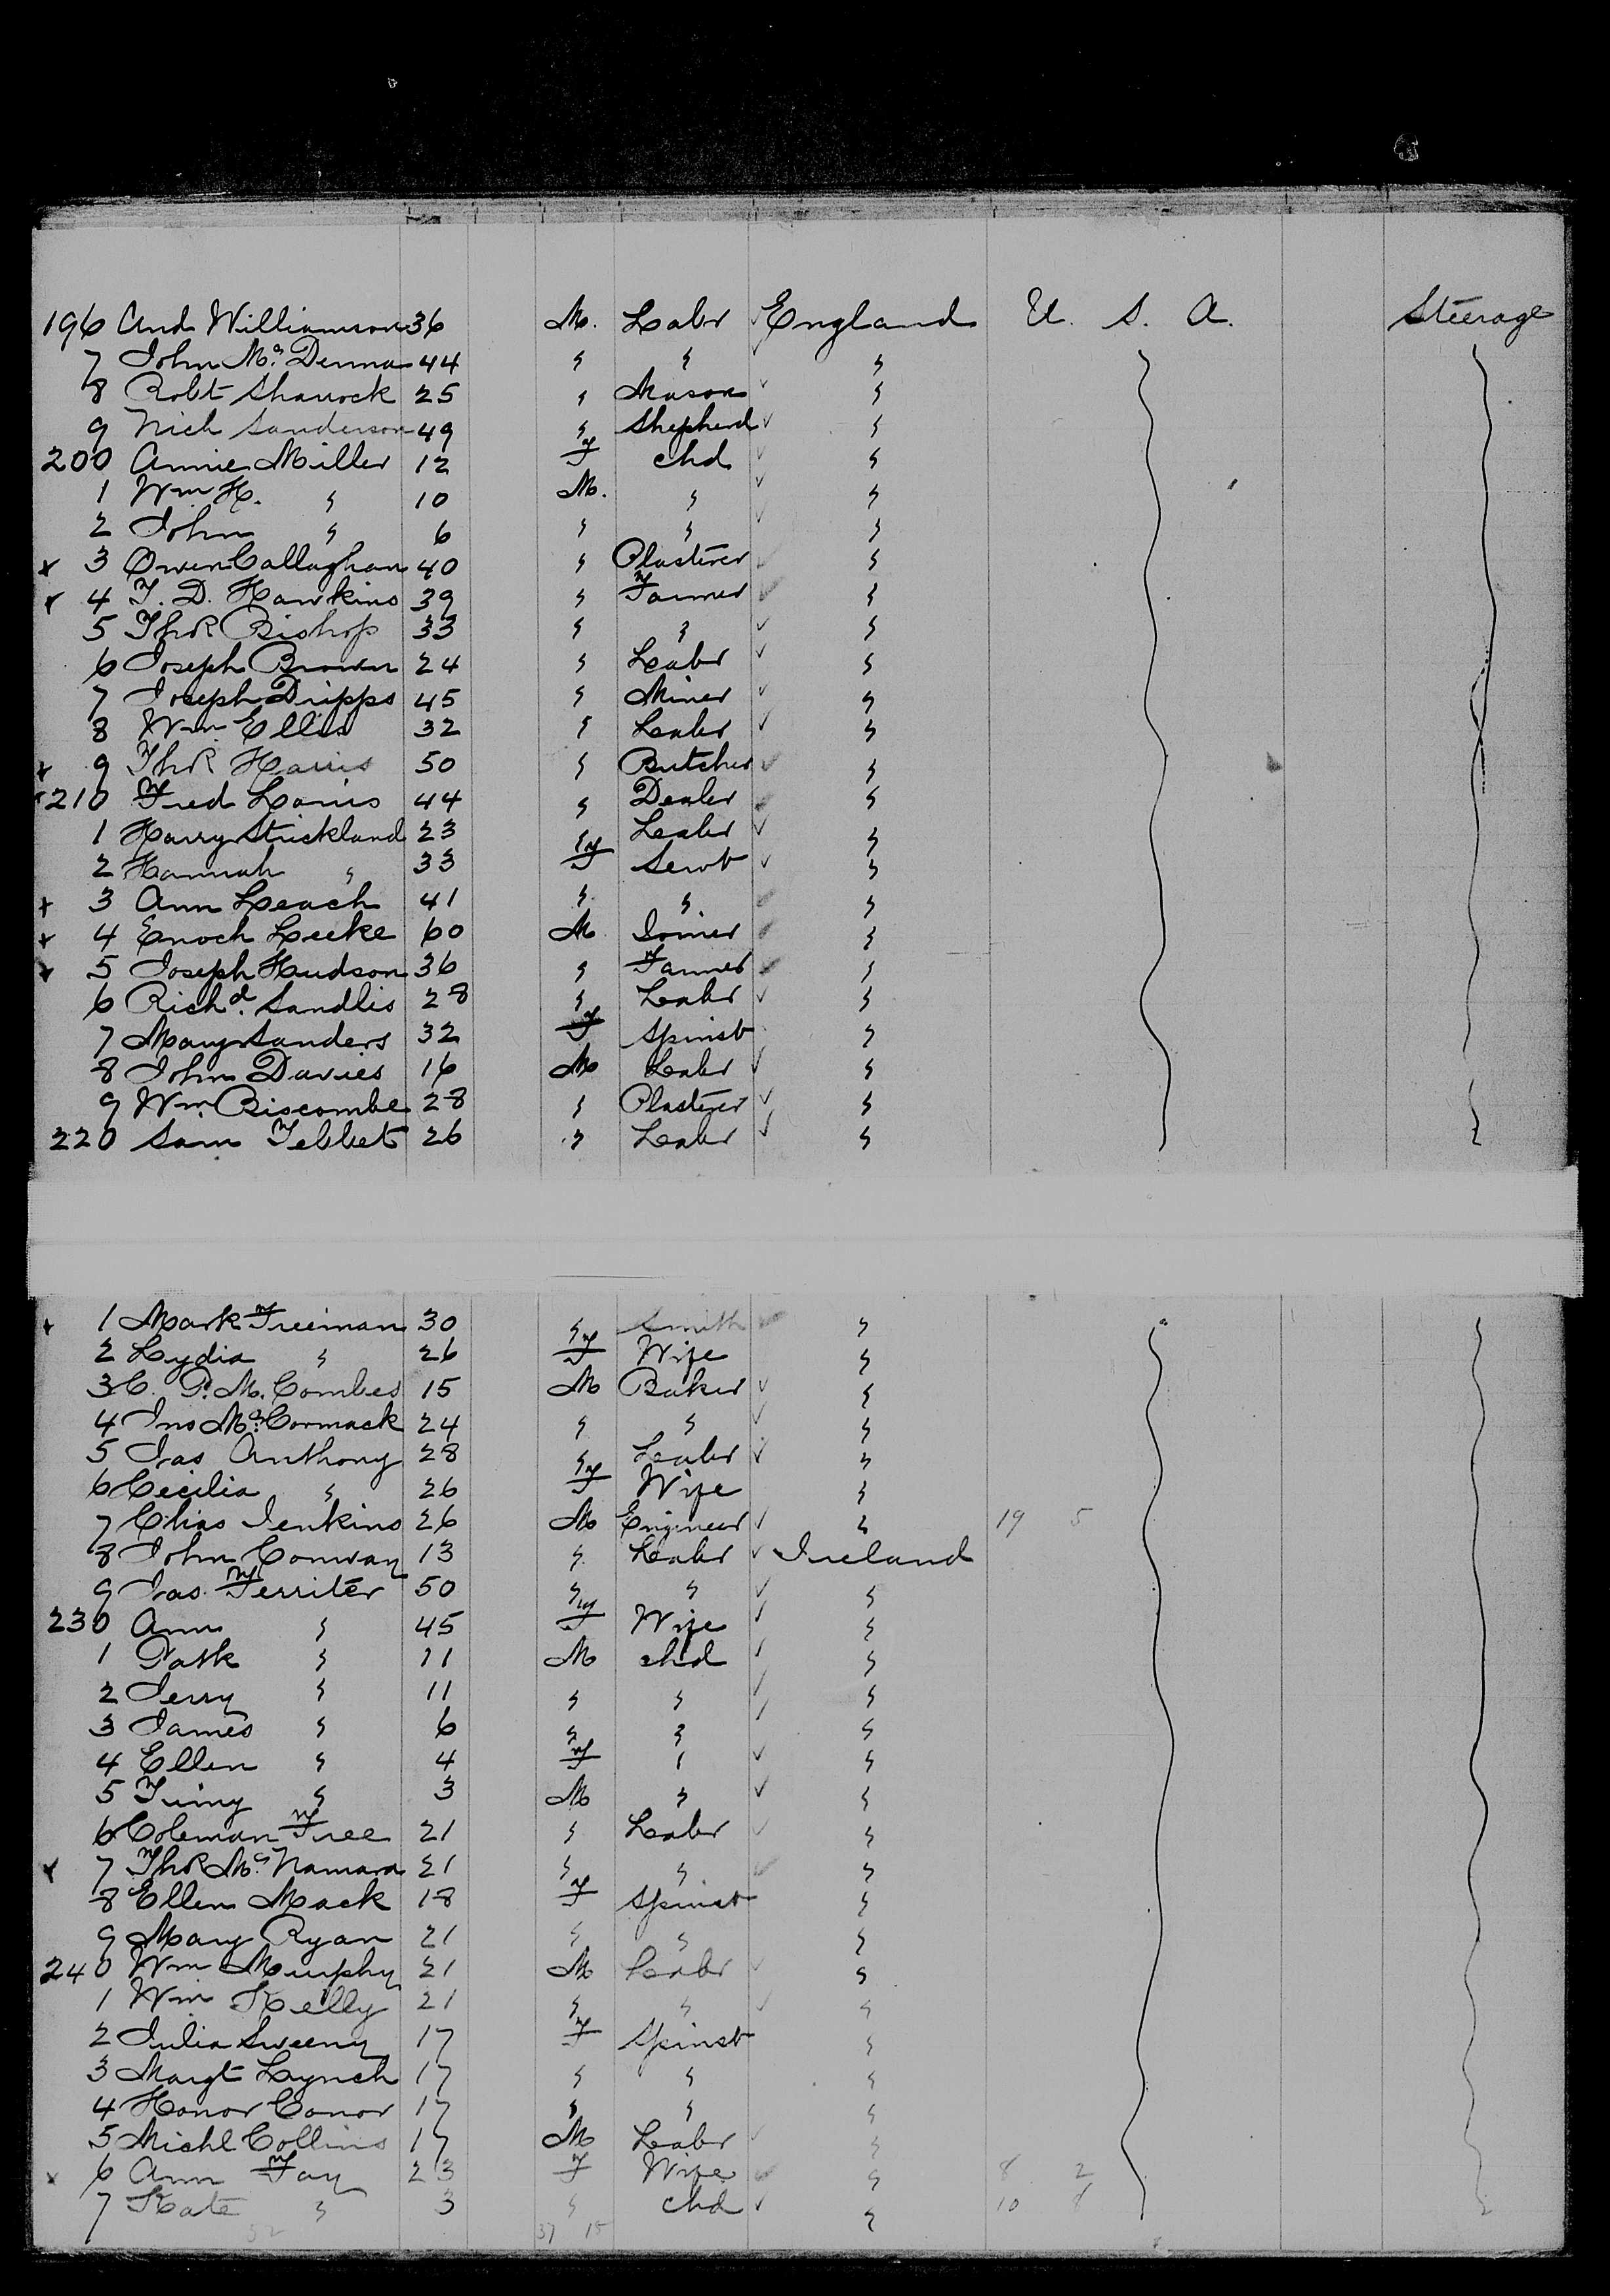 196 And Williamson 36 M. Labr ✓ England U. S. A. Steerage
7 John Mc Denna 44 " " ✓ "
8 Robt Sharrock 25 " Mason ✓ "
9 Nich Sanderson 49 " Shepherd ✓ "
200 Annie Miller 12 F chd ✓ "
1 Wm H. " 10 M. " ✓ "
2 John " 6 " " ✓ "
x 3 Owen Callaghan 40 " Plasterer ✓ "
x 4 T. D. Hawkins 39 " Farmer ✓ "
5 Thos Bishop 33 " " ✓ "
6 Joseph Brown 24 " Labr ✓ "
7 Joseph Dripps 45 " Miner ✓ "
8 Wm Ellis 32 " Labr ✓ "
x 9 Thos Harris 50 " Butcher ✓ "
x 210 Fred 44 " Dealer ✓ "
1 Harry Strickland 23 " Labr ✓ "
2 Hannah " 33 F Servt ✓ "
x 3 Ann Leach 41 " " ✓ "
x 4 Enoch Leeke 60 M Joiner ✓ "
x 5 Joseph Hudson 36 " Farmer ✓ "
6 Richd. Sandlis 28 " Labr ✓ "
7 Mary Sanders 32 F Spinst "
8 John Davies 16 M Labr ✓ "
9 Wm Biscombe 28 " Plasterer ✓ "
220 Sam Tebbet 26 " Labr ✓ "
x 1 Mark Freeman 30 " Smith ✓ "
2 Lydia " 26 F Wife "
3 C. P. M. Combes 15 M Baker ✓ "
4 Jno Mc Cormack 24 " " ✓ "
5 Jas Anthony 28 " Labr ✓ "
6 Cecilia " 26 F Wife "
7 Chas Jenkins 26 M Engineer ✓ " 19 5
8 John Conway 13 " Labr ✓ Ireland
9 Jas. Ferriter 50 " " ✓ "
230 Ann " 45 F Wife ✓ "
1 Patk " 11 M chd ✓ "
2 Jerry " 11 " " ✓ "
3 James " 6 " " "
4 Ellen " 4 F " ✓ "
5 " 3 M " ✓ "
6 Coleman Free 21 " Labr ✓ "
x 7 Thos Mc Namara 21 " " ✓ "
8 Ellen Mack 18 F Spinst "
9 Mary Ryan 21 " " "
240 Wm Murphy 21 M Labr ✓ "
1 Wm Kelly 21 " " ✓ "
2 Julia Sweeny 17 F Spinst "
3 Margt Lynch 17 " " "
4 Honor Conor 17 " " "
5 Michl Collins 17 M Labr ✓ "
x 6 Ann Fay 23 F Wife ✓ " 8 2
7 Kate " 3 " chd ✓ " 10
37 15